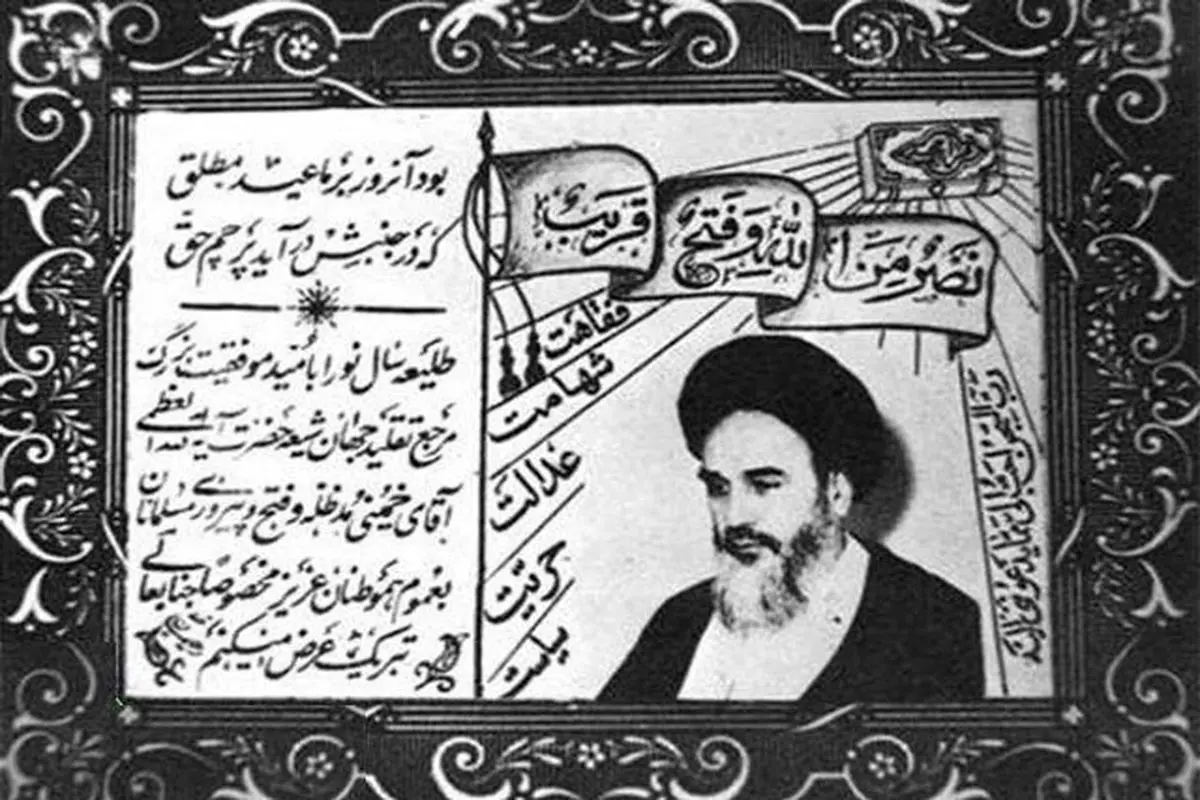 نَصْرٌ مِنَ اللّٰهِ وَفَتْحٌ قَرِيبٌ
بود آنروز بر ما عید مطلق
که در جنبش در آید پرچم حق
طلیعه سال نو را با امید موفقیت بزرگ
مرجع تقلید جهان شیعه حضرت آیة الله العظمی
آقای خمینی مدظله و فتح و پیروزی مسلمانان
بعموم هموطنان عزیز مخصوصا جنابعالی
تبریک عرض میکنم
فقاهت
شهامت
عدالت
حریت
سیاست